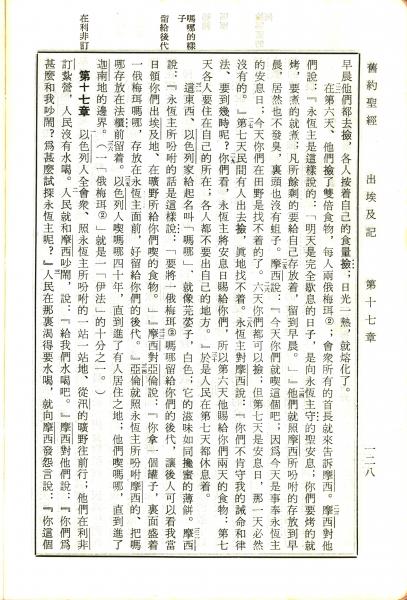 舊約聖經　出埃及記　第十七章　一二八
早晨他們都去撿，各人按着自己的食量撿；日光一熱，就熔化了。
在第六天、他們撿了雙倍食物，每人兩俄梅珥②；會衆所有的首長就來告訴摩西。摩西對他
們說：『永恆主是這樣說的：「明天是完全歇息的日子，是向永恆主守的聖安息；你們要烤的就
烤，要煮的就煮；凡所餘剩的要給自己存放着，留到早晨。」』他們就照摩西所吩咐的存放到早
晨，居然也不發臭，裏頭也沒有蛆子。摩西說：『今天你們就喫這個吧；因爲今天是事奉永恆主
的安息日；今天你們在田野是找不着的了。六天你們都可以撿；但第七天是安息日，那一天必然
沒有的。』第七天民間有人出去撿，眞地找不着。永恆主對摩西說：『你們不肯守我的誡命和律
法、要到幾時呢？你們看，永恆主將安息日賜給你們，所以第六天他賜給你們兩天的食物：第七
天各人要住在自己的所在，各人都不要出自己的地方。』於是人民在第七天都休息着。
這東西、以色列家給起名叫「嗎哪」，就像芫荽子，白色；它的滋味如同攙蜜的薄餅。摩西
說：『永恆主所吩咐的話是這樣說：「要將一俄梅珥②嗎哪留給你們的後代，讓後人可以看我當
日領你們出埃及地、在曠野所給你們喫的食物。」』摩西對亞倫說：『你拿一個罐子，裏面盛着
一俄梅珥嗎哪，存放在永恆主面前，好留給你們的後代。』亞倫就照永恆主所吩咐摩西的、把嗎
哪存放在法櫃前留着。以色列人喫嗎哪四十年，直到進了有人居住之地；他們喫嗎哪，直到進了
迦南地的邊界。（一「俄梅珥②」就是一「伊法」的十分之一。）
第十七章　以色列人全會衆、照永恆主所吩咐的一站一站地、從汛的曠野往前行；他們在利非
訂紮營，人民沒有水喝。人民就和摩西吵鬧，說：『給我們水喝吧。』摩西對他們說：『你們爲
甚麼和我吵鬧？爲甚麼試探永恆主呢？』人民在那裏渴得要水喝，就向摩西發怨言說：『你這個
嗎哪的樣
子
留給後代
在利非訂